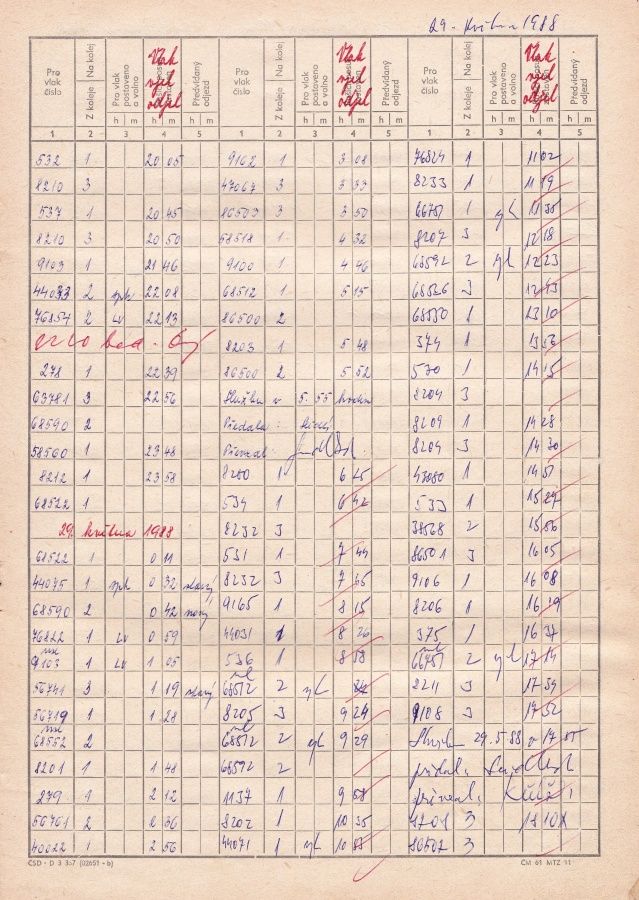 29. května 1988
Pro vlak číslo Z koleje Na kolej Pro vlak postaveno a volno Vlak vjel odjel Předvídaný odjezd Pro vlak číslo Z koleje Na kolej Pro vlak postaveno a volno Vlak vjel odjel Předvídaný odjezd Pro vlak číslo Z koleje Na kolej Pro vlak postaveno a volno Vlak vjel odjel Předvídaný odjezd
h m h m h m h m h m h m h m h m h m
1 2 3 4 5 1 2 3 4 5 1 2 3 4 5
532 1 20 05 9162 1 3 08 76824 1 11 02
8210 3 47067 3 3 33 8233 1 11 19
537 1 20 45 86503 3 3 50 66751 1 11 35
8210 3 20 50 58518 1 4 32 8207 3 12 18
9103 1 21 46 9100 1 4 46 68592 2 12 23
44033 2 22 08 68512 1 5 15 68526 3 12 43
76854 2 Lv 22 13 86500 2 68550 1 13 10
8203 1 5 48 374 1 13 56
278 1 22 39 86500 2 5 52 530 1 14 15
63781 3 22 56 Službu v 5.55 hodin 8204 3
68590 2 Předala: 8209 1 14 28
58560 1 23 48 Převzal: 8204 3 14 30
8212 1 23 58 8280 1 6 25 43080 1 14 57
68522 1 534 1 6 42 533 1 15 27
29. května 1988 8232 3 38568 2 15 56
68522 1 0 11 531 1 7 44 86501 3 16 05
44075 1 0 32 8232 3 7 55 9106 1 16 08
68590 2 0 42 nový 9165 1 8 15 8206 1 16 19
76822 1 Lv 0 59 44031 1 8 26 375 1 16 37
9103 1 Lv 1 05 536 1 8 58 66751 2 17 14
56741 3 1 19 68512 2 2211 3 17 34
56719 1 1 28 8205 3 9 24 9108 3 17 52
68552 2 68512 2 9 29 29.5.88
8201 1 1 48 68592 2 předal:
279 1 2 12 1137 1 9 58 převzal:
56761 2 2 36 8202 1 10 35 3
40022 1 2 56 44071 1 10 55 86507 3
ČSD - D 3 357 (02651 - b) ČM 61 MTZ 11